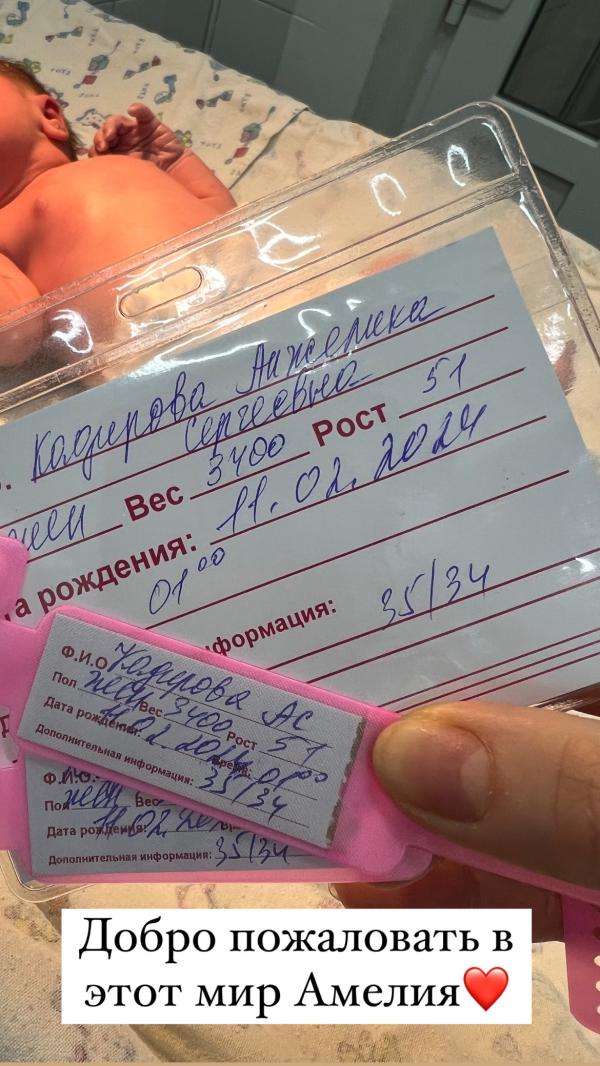 Кадирова Анжелика
Сергеевна
жен Вес 3400 Рост 51
а рождения: 11.02.2024
01⁰⁰
формация: 35/34
Ф.И.О Кадирова АС
Пол жен Вес 3400 Рост 51
Дата рождения: 11.02.2024 Время: 01⁰⁰
Дополнительная информация: 35/34
Ф.И.О.
Пол жен Вес
Дата рождения: 11.02.
Дополнительная информация: 35/34
Добро пожаловать в
этот мир Амелия❤️